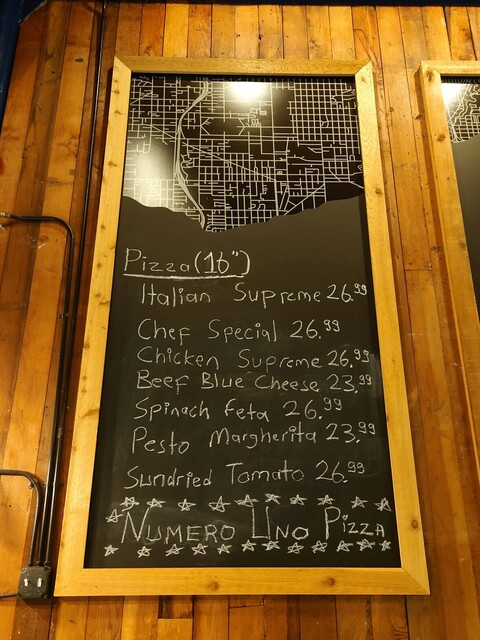 Pizza (16")
Italian Supreme 26.99
Chef Special 26.99
Chicken Supreme 26.99
Beef Blue Cheese 23.99
Spinach Feta 26.99
Pesto Margherita 23.99
Sundried Tomato 26.99
NUMERO UNO PIZZA